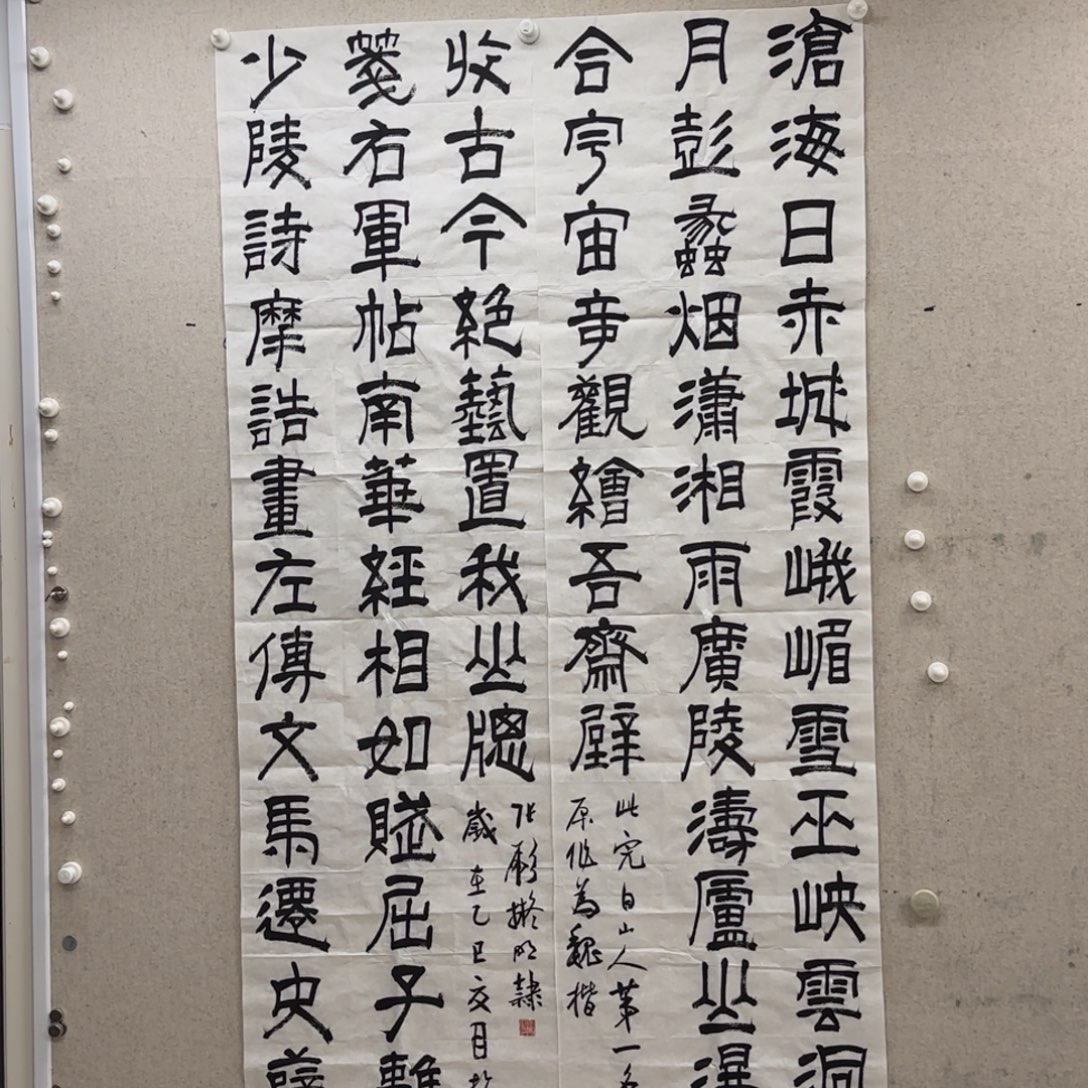 滄海日赤城霞峨嵋雪巫峡雲洞
月彭蠡烟瀟湘雨廣陵濤廬山瀑
合宇宙奇觀繪吾齋壁
此完白山人第一
原作為魏楷
少陵詩摩詰畫左傳文馬遷史薛
箋右軍帖南華經相如賦屈子離
收古今絕藝置我山牕
擬隸
歲在乙巳